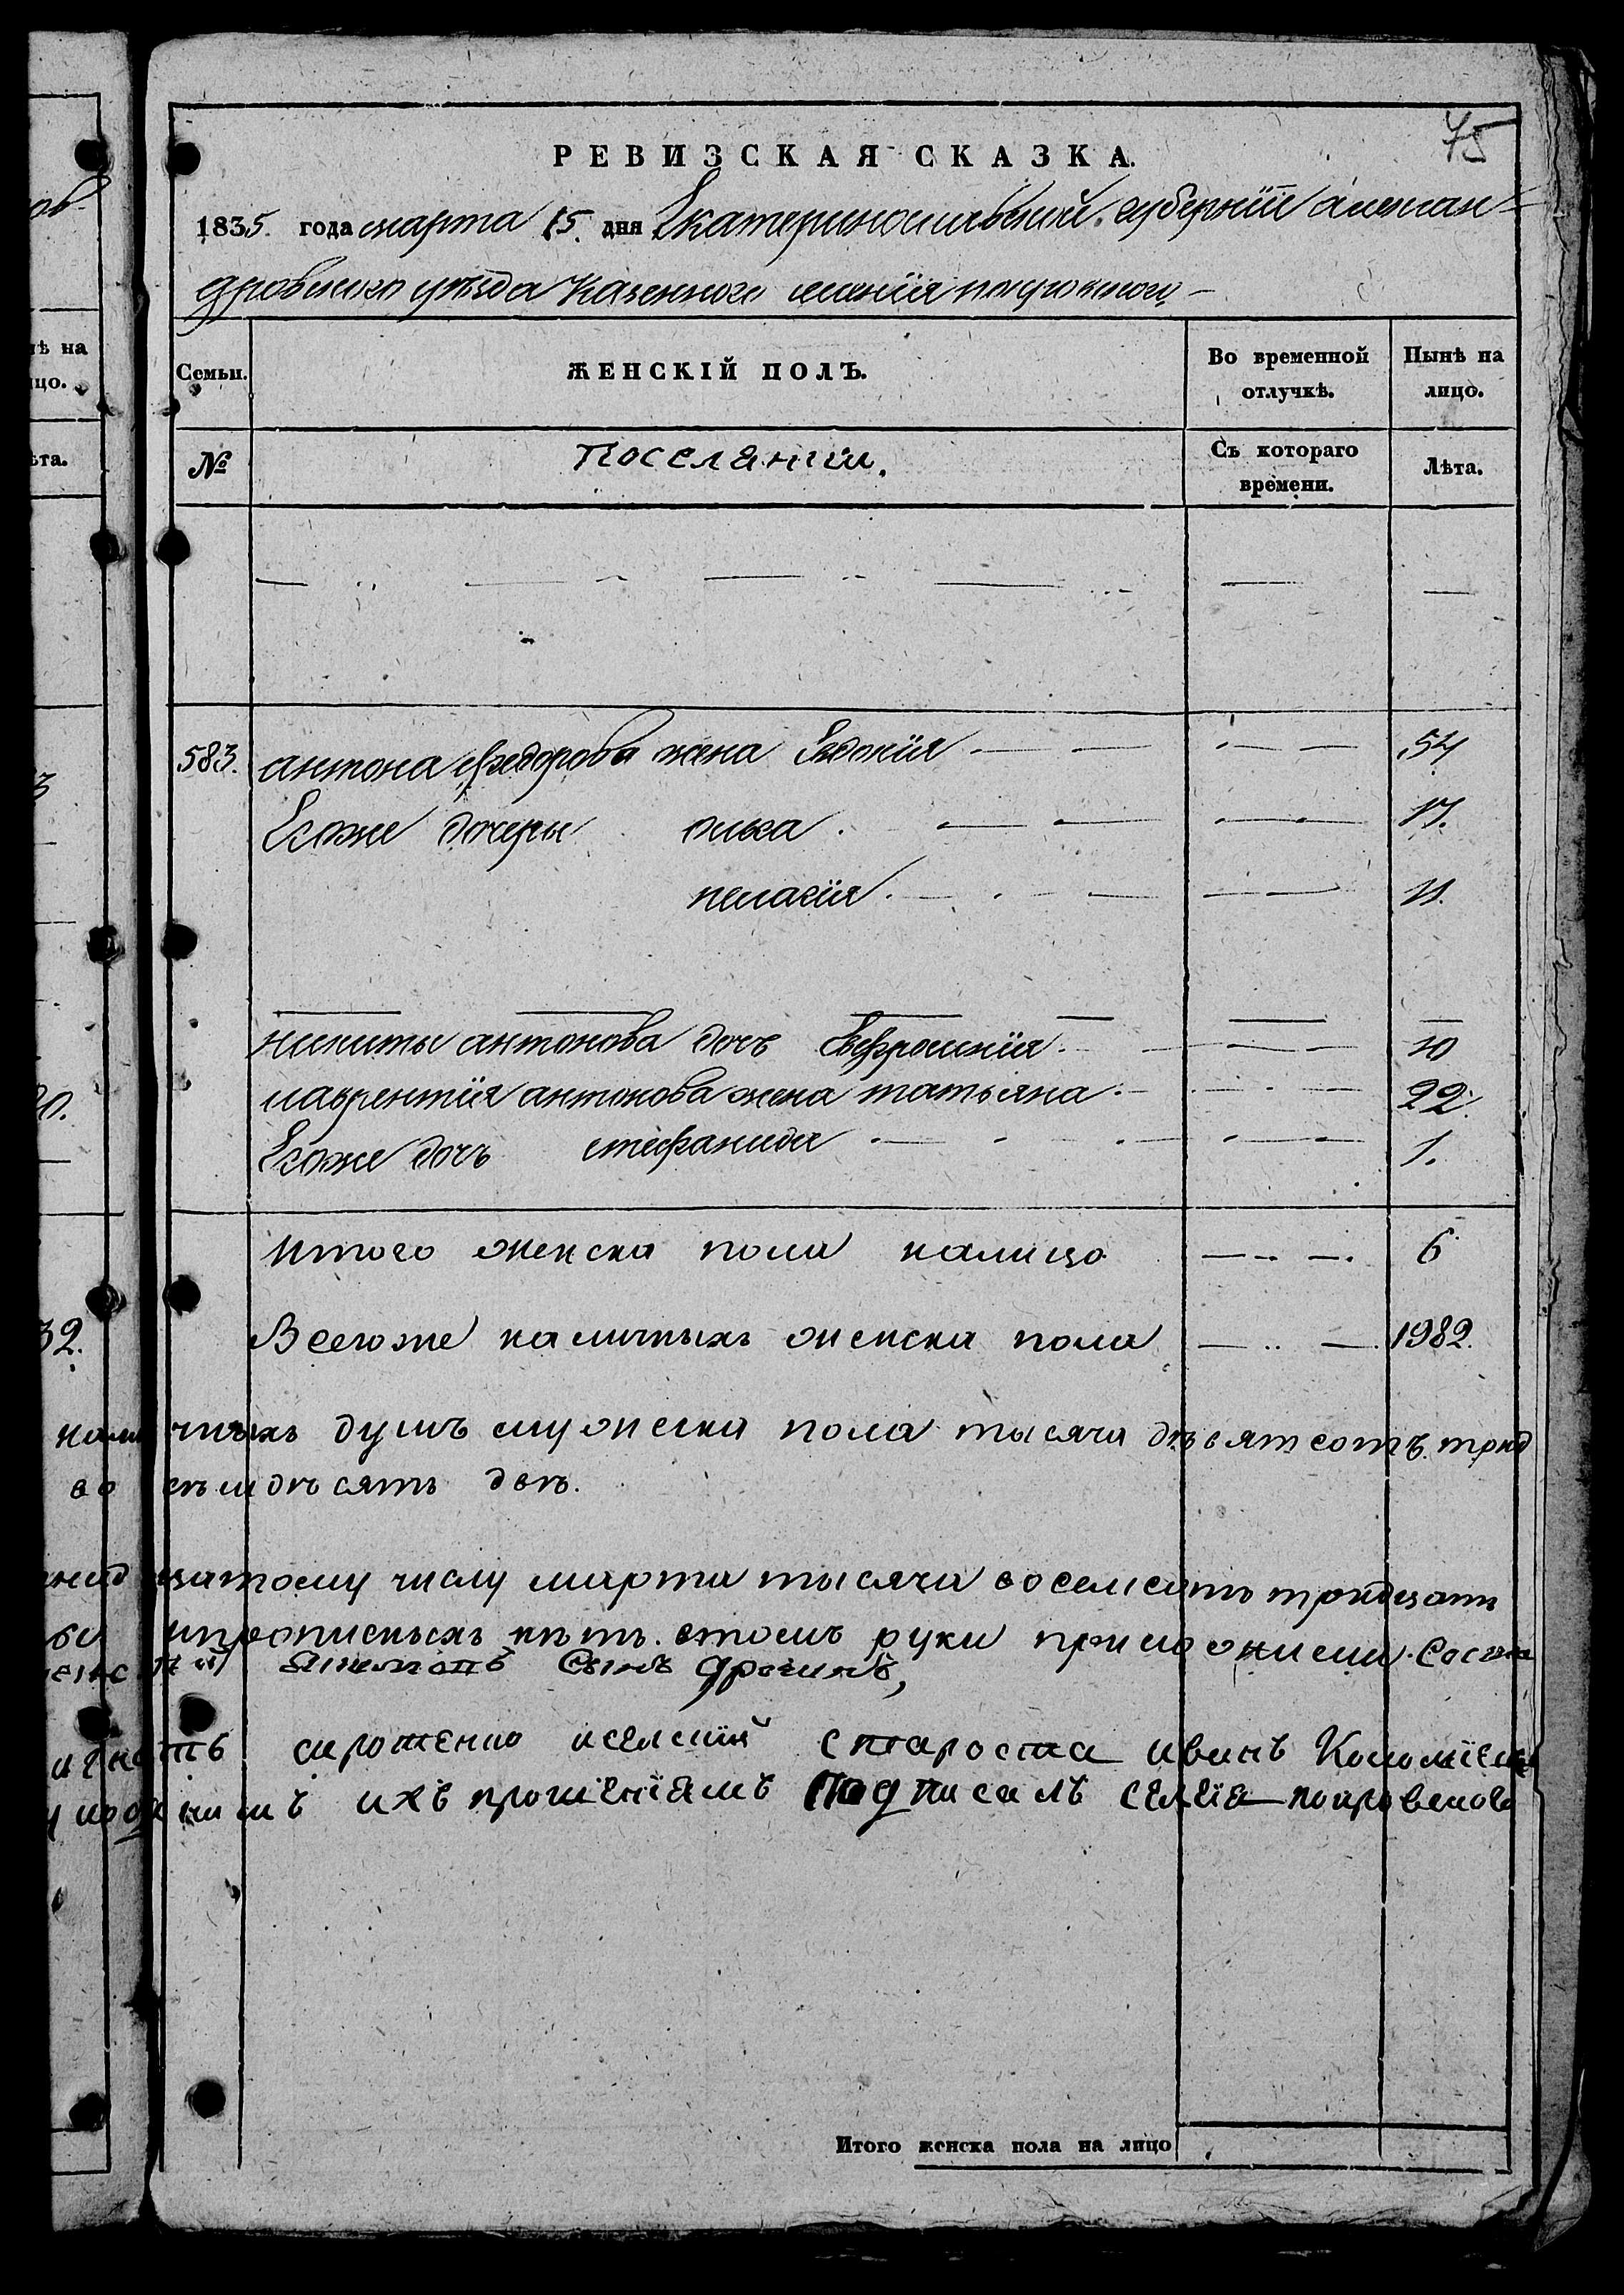 75
РЕВИЗСКАЯ СКАЗКА.
1835. года марта 15. дня Екатеринославской губернїи александровскаго уѣзда Казенного селенїя покровского
Семьи.
ЖЕНСКІЙ ПОЛЪ.
Во временной отлучкѣ.
Нынѣ на лицо.
№
Поселянии.
Съ котораго времени.
Лѣта.
583. антона федорова жена Евдокїя 54
Егоже дочеры олька 17.
пелагїя 11.
никиты антонова дочь Евфросинїя 10
лаврентїя антонова жена татьяна 22.
Егоже дочь стефанида 1.
Итого женска пола налицо 6
Всегоже наличныхъ женска пола 1982.
наличныхъ душъ мужеска пола тысяча девятсотъ
семдесятъ двѣ.
цатому числу марта тысяча восемсотъ тридцать
ипрописныхъ нѣтъ. втомъ руки приложили.
сынъ
староста иванъ
ихъ прошенїямъ Подписалъ селенїя покровского
Итого женска пола на лицо